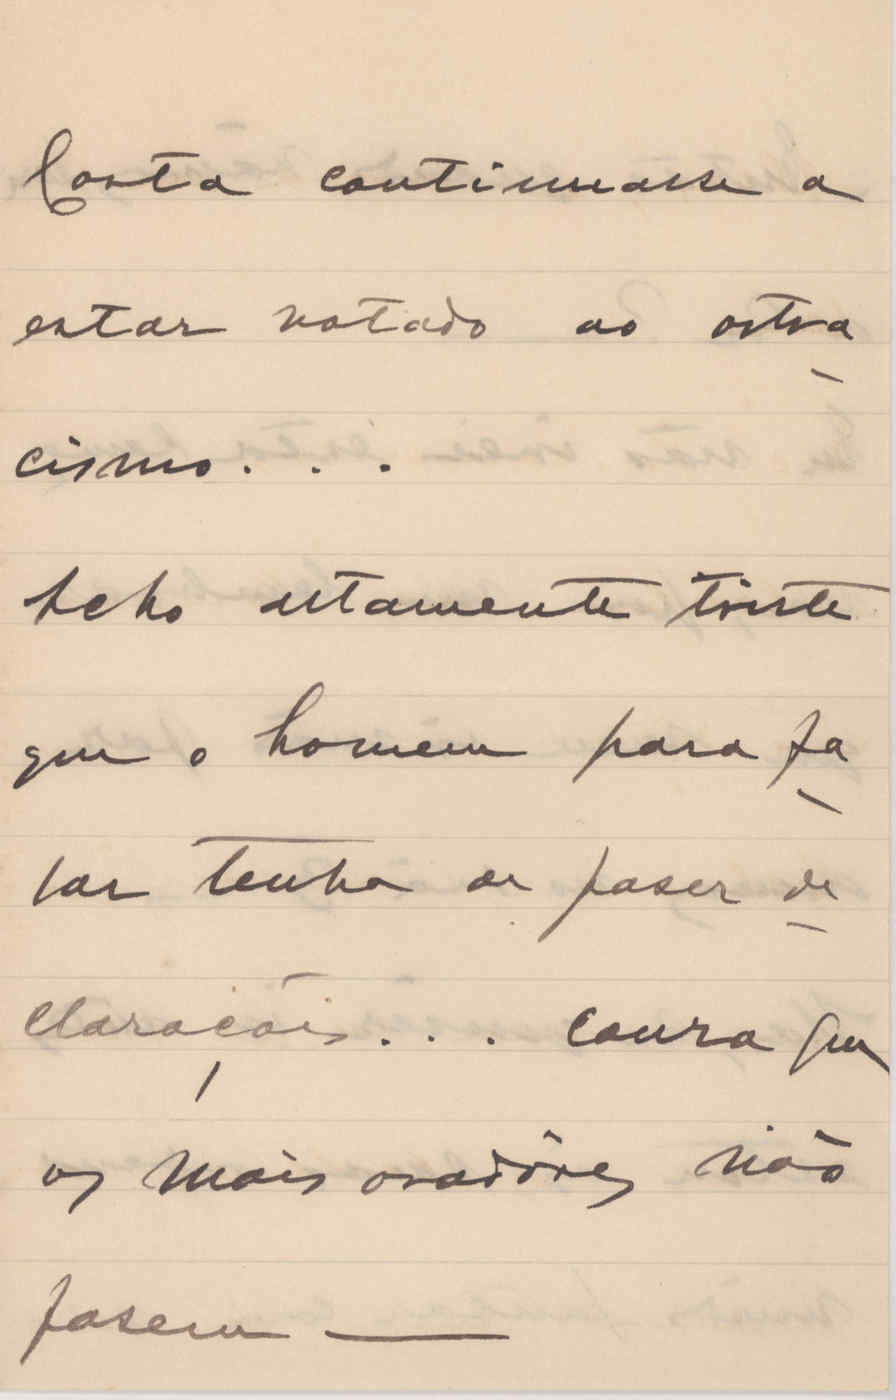 Costa continuasse a
estar votado ao ostra
cismo...
Acho altamente triste
que o homem para fa
lar tenha de faser de
clarações... cousa que
os mais oradôres não
fasem —